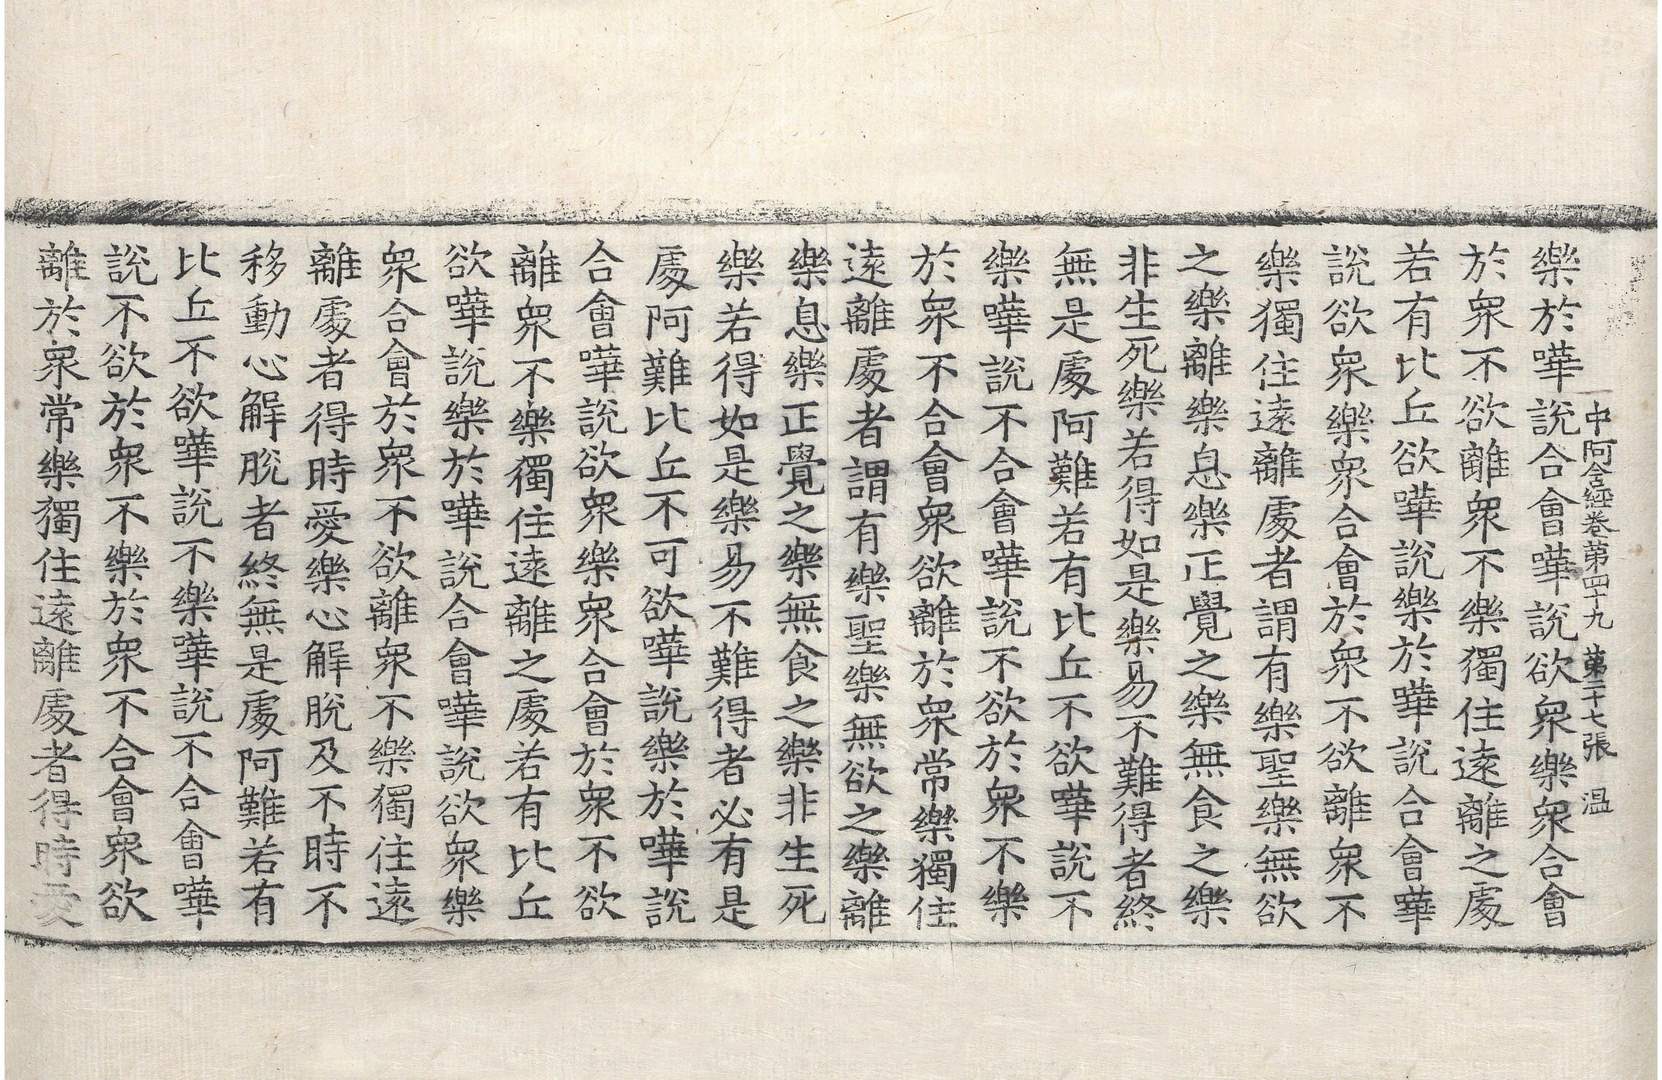 中阿含經卷第四十九 第二十七張 温
樂於嘩說合會嘩說欲衆樂衆合會
於衆不欲離衆不樂獨住遠離之處
若有比丘欲嘩說樂於嘩說合會嘩
說欲衆樂衆合會於衆不欲離衆不
樂獨住遠離處者謂有樂聖樂無欲
之樂離樂息樂正覺之樂無食之樂
非生死樂若得如是樂易不難得者終
無是處阿難若有比丘不欲嘩說不
樂嘩說不合會嘩說不欲於衆不樂
於衆不合會衆欲離於衆常樂獨住
遠離處者謂有樂聖樂無欲之樂離
樂息樂正覺之樂無食之樂非生死
樂若得如是樂易不難得者必有是
處阿難比丘不可欲嘩說樂於嘩說
合會嘩說欲衆樂衆合會於衆不欲
離衆不樂獨住遠離之處若有比丘
欲嘩說樂於嘩說合會嘩說欲衆樂
衆合會於衆不欲離衆不樂獨住遠
離處者得時愛樂心解脫及不時不
移動心解脫者終無是處阿難若有
比丘不欲嘩說不樂嘩說不合會嘩
說不欲於衆不樂於衆不合會衆欲
離於衆常樂獨住遠離處者得時愛